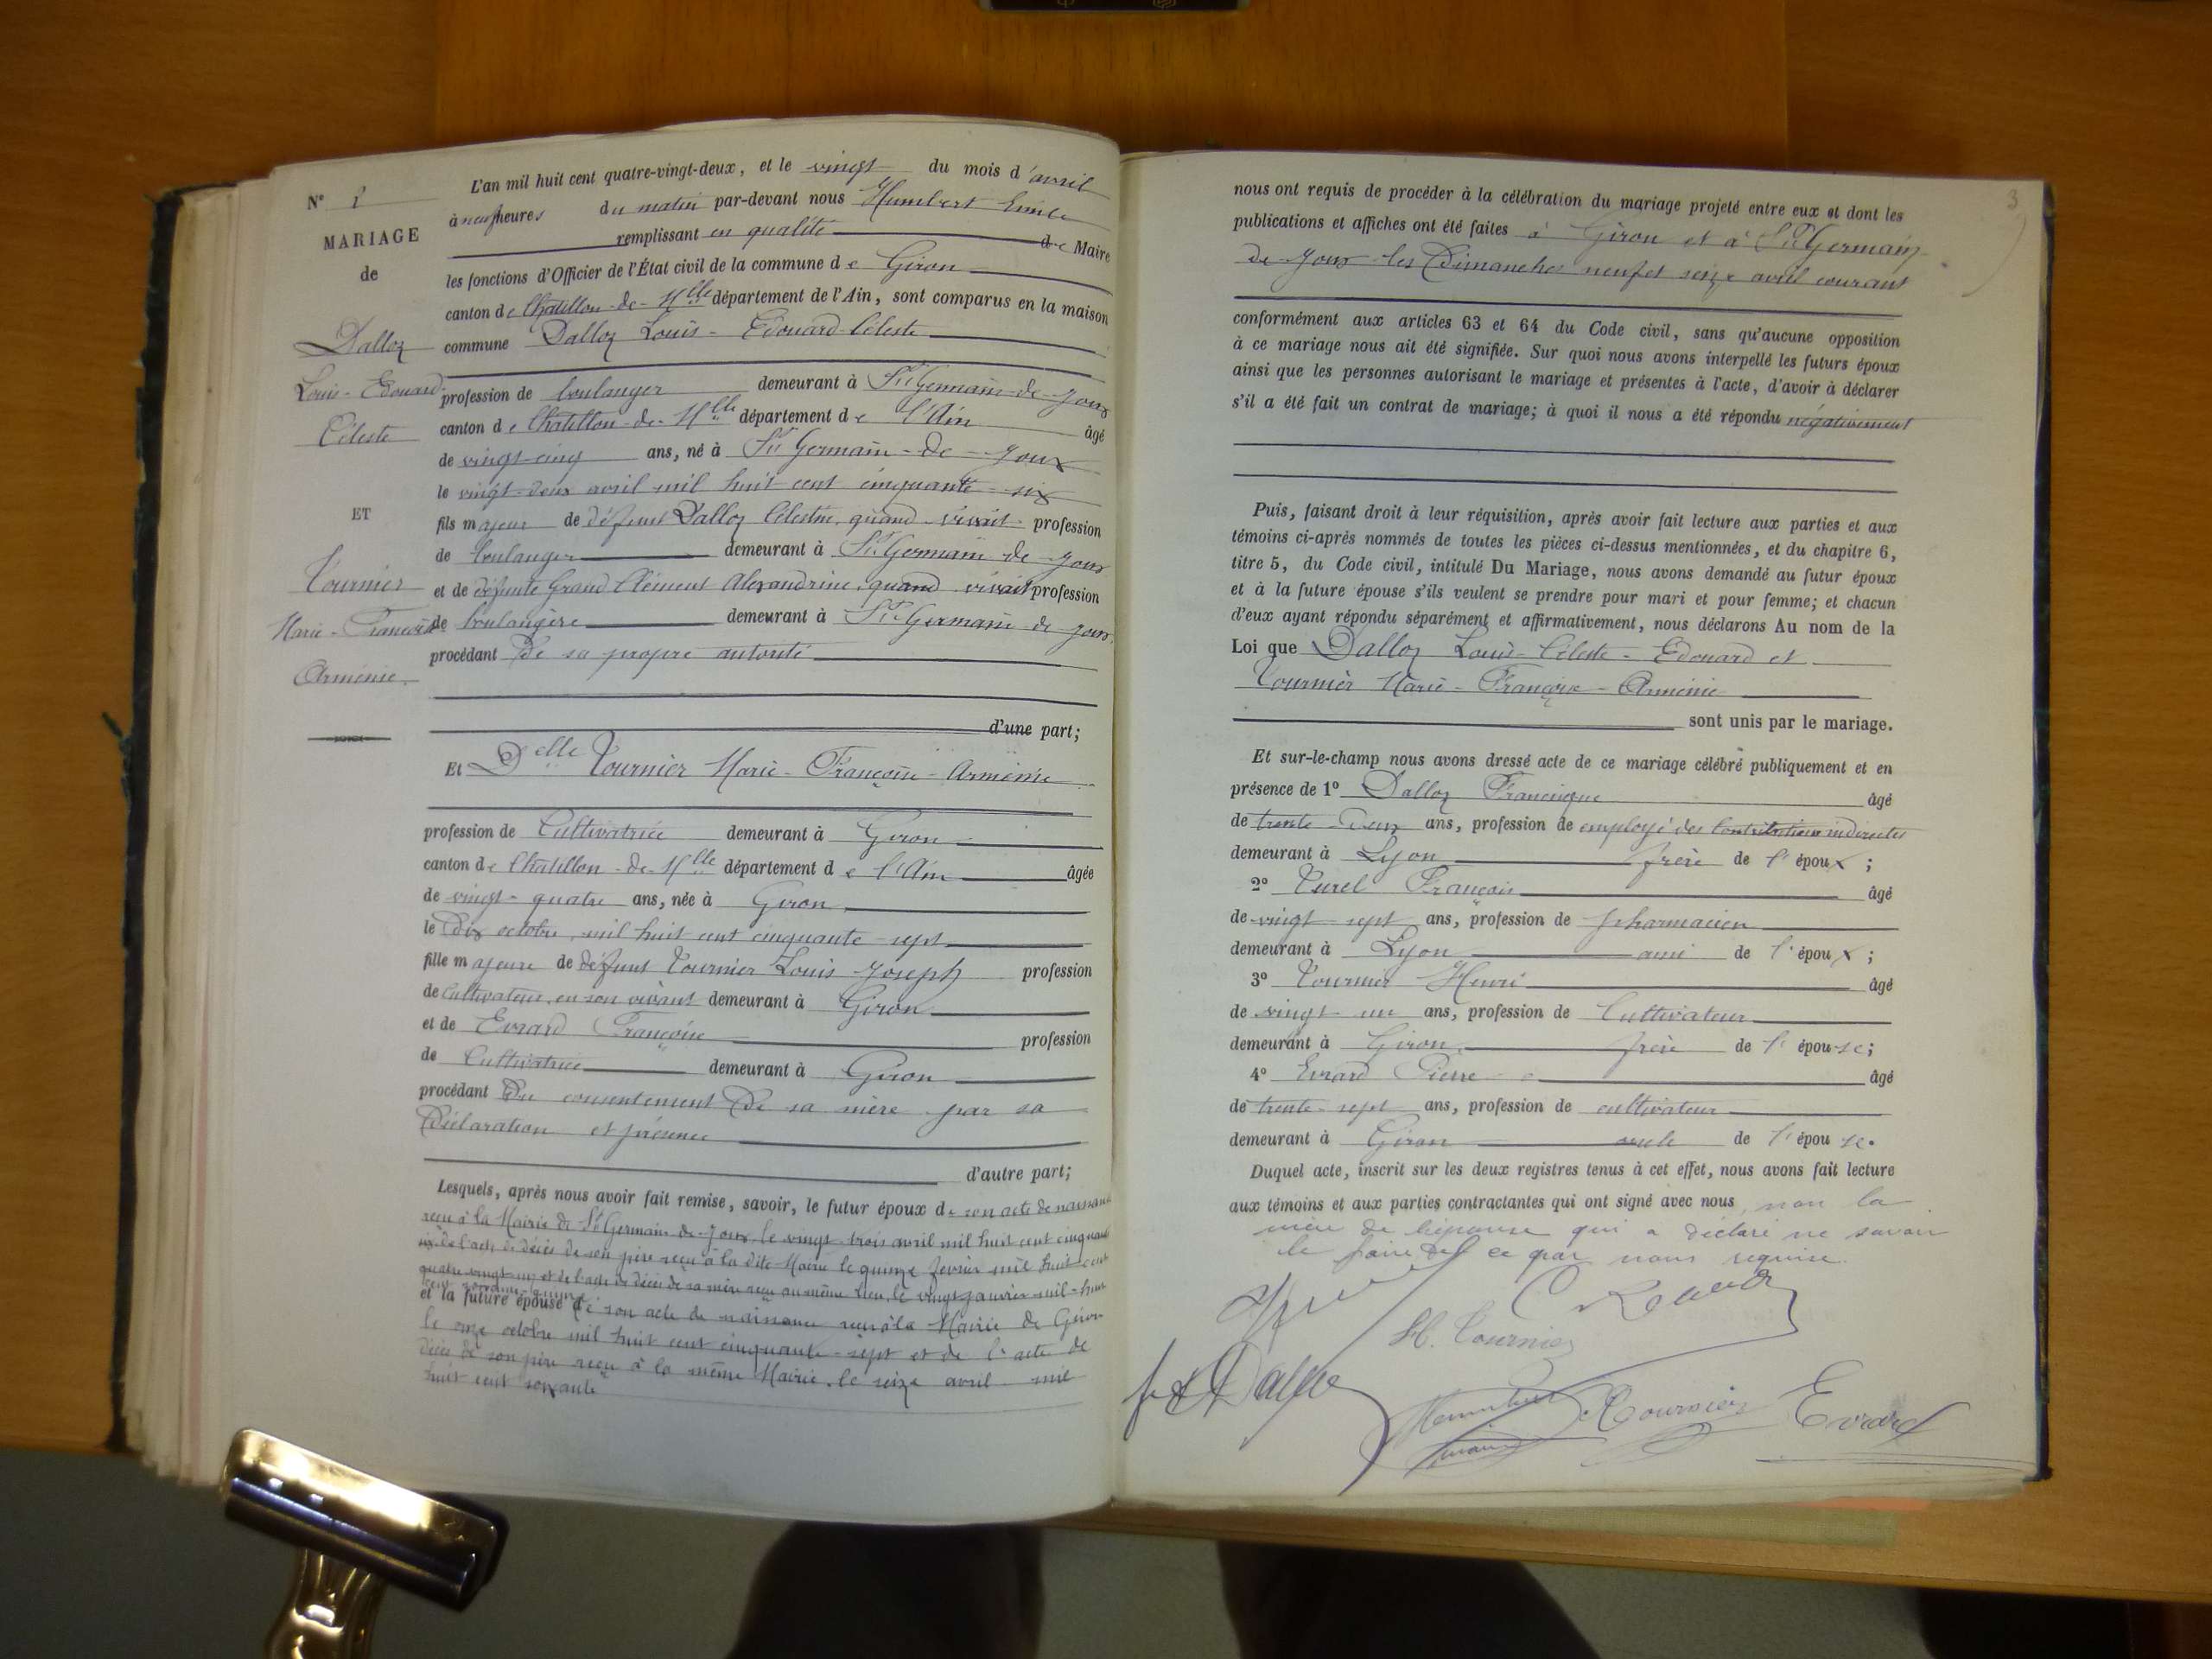 N° 2
MARIAGE
de
Dalloz
Louis-Edouard-
Céleste
ET
Tournier
Marie-Françoise
Arménie.
L'an mil huit cent quatre-vingt-deux, et le vingt du mois d'avril
à neuf heures du matin par-devant nous Humbert Emile
remplissant en qualité de Maire
les fonctions d'Officier de l'État civil de la commune de Giron
canton de Chatillon-de-Mlle département de l'Ain, sont comparus en la maison
commune Dalloz Louis-Edouard-Céleste
profession de boulanger demeurant à St Germain-de-Joux
canton de Chatillon-de-Mlle département de l'Ain âgé
de vingt-cinq ans, né à St Germain-de-Joux
le vingt-deux avril mil huit cent cinquante-six
fils majeur de défunt Dalloz Célestin, quand vivait profession
de boulanger demeurant à St Germain-de-Joux
et de défunte Grand Clément Alexandrine, quand vivait profession
de boulangère demeurant à St Germain-de-Joux,
procédant De sa propre autorité
d'une part;
Et Delle Tournier Marie-Françoise-Arménie
profession de Cultivatrice demeurant à Giron
canton de Chatillon-de-Mlle département de l'Ain âgée
de vingt-quatre ans, née à Giron
le dix octobre, mil huit cent cinquante-sept
fille majeure de défunt Tournier Louis Joseph profession
de Cultivateur, en son vivant demeurant à Giron
et de Evrard Françoise profession
de Cultivatrice demeurant à Giron
procédant Du consentement de sa mère par sa
Déclaration et présence
d'autre part;
Lesquels, après nous avoir fait remise, savoir, le futur époux de son acte de naissance
reçu à la Mairie de St Germain-de-Joux, le vingt-trois avril mil huit cent cinquante
six de l'acte de décès de son père reçu à la dite Mairie le quinze février mil huit cent
quatre vingt-un et de l'acte de décès de sa mère reçu au même lieu, le vingt janvier mil-huit
cent soixante-quinze
et la future épouse de son acte de naissance reçu à la Mairie de Giron
le onze octobre mil huit cent cinquante-sept et de l'acte de
décès de son père reçu à la même Mairie, le seize avril mil
huit cent soixante
3
nous ont requis de procéder à la célébration du mariage projeté entre eux et dont les
publications et affiches ont été faites à Giron et à St Germain-
de-Joux les Dimanches neuf et seize avril courant
conformément aux articles 63 et 64 du Code civil, sans qu'aucune opposition
à ce mariage nous ait été signifiée. Sur quoi nous avons interpellé les futurs époux
ainsi que les personnes autorisant le mariage et présentes à l'acte, d'avoir à déclarer
s'il a été fait un contrat de mariage; à quoi il nous a été répondu négativement
Puis, faisant droit à leur réquisition, après avoir fait lecture aux parties et aux
témoins ci-après nommés de toutes les pièces ci-dessus mentionnées, et du chapitre 6,
titre 5, du Code civil, intitulé Du Mariage, nous avons demandé au futur époux
et à la future épouse s'ils veulent se prendre pour mari et pour femme; et chacun
d'eux ayant répondu séparément et affirmativement, nous déclarons Au nom de la
Loi que Dalloz Louis-Céleste-Edouard et
Tournier Marie-Françoise-Arménie
sont unis par le mariage.
Et sur-le-champ nous avons dressé acte de ce mariage célébré publiquement et en
présence de 1° Dalloz Francisque âgé
de trente-deux ans, profession de employé des Contributions indirectes
demeurant à Lyon frère de l'époux;
2° Turel François âgé
de vingt-sept ans, profession de pharmacien
demeurant à Lyon ami de l'époux;
3° Tournier Henri âgé
de vingt un ans, profession de Cultivateur
demeurant à Giron frère de l'épouse;
4° Evrard Pierre âgé
de trente-sept ans, profession de cultivateur
demeurant à Giron oncle de l'épouse.
Duquel acte, inscrit sur les deux registres tenus à cet effet, nous avons fait lecture
aux témoins et aux parties contractantes qui ont signé avec nous, non la
mère de l'épouse qui a déclaré ne savoir
le faire de ce par nous requise.
H. Tournier
Humbert Tournier Evrard
maire